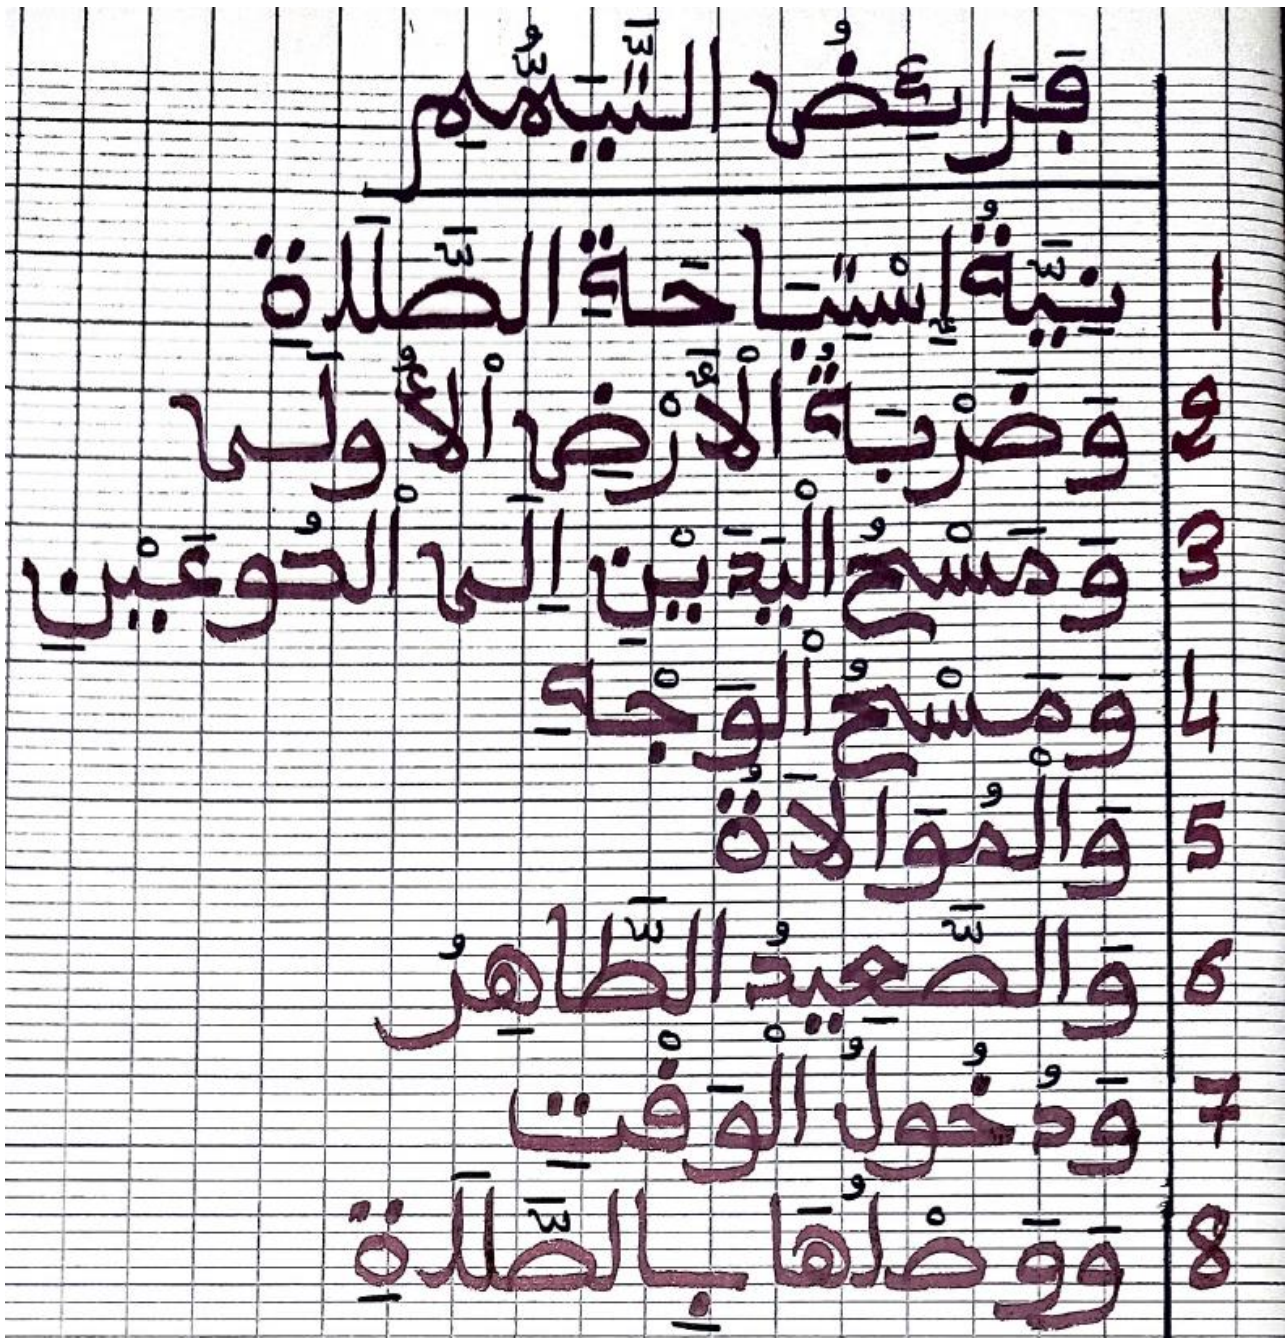 فَرَائِضُ التَّيَمُّمِ
1 نِيَّةُ إِسْتِبَاحَةِ الصَّلَاةِ
2 وَضَرْبَةُ الْأَرْضِ الْأُولَى
3 وَمَسْحُ الْيَدَيْنِ إِلَى الْكُوعَيْنِ
4 وَمَسْحُ الْوَجْهِ
5 وَالْمُوَالَاةُ
6 وَالصَّعِيدُ الطَّاهِرُ
7 وَدُخُولُ الْوَقْتِ
8 وَوَصْلُهَا بِالصَّلَاةِ